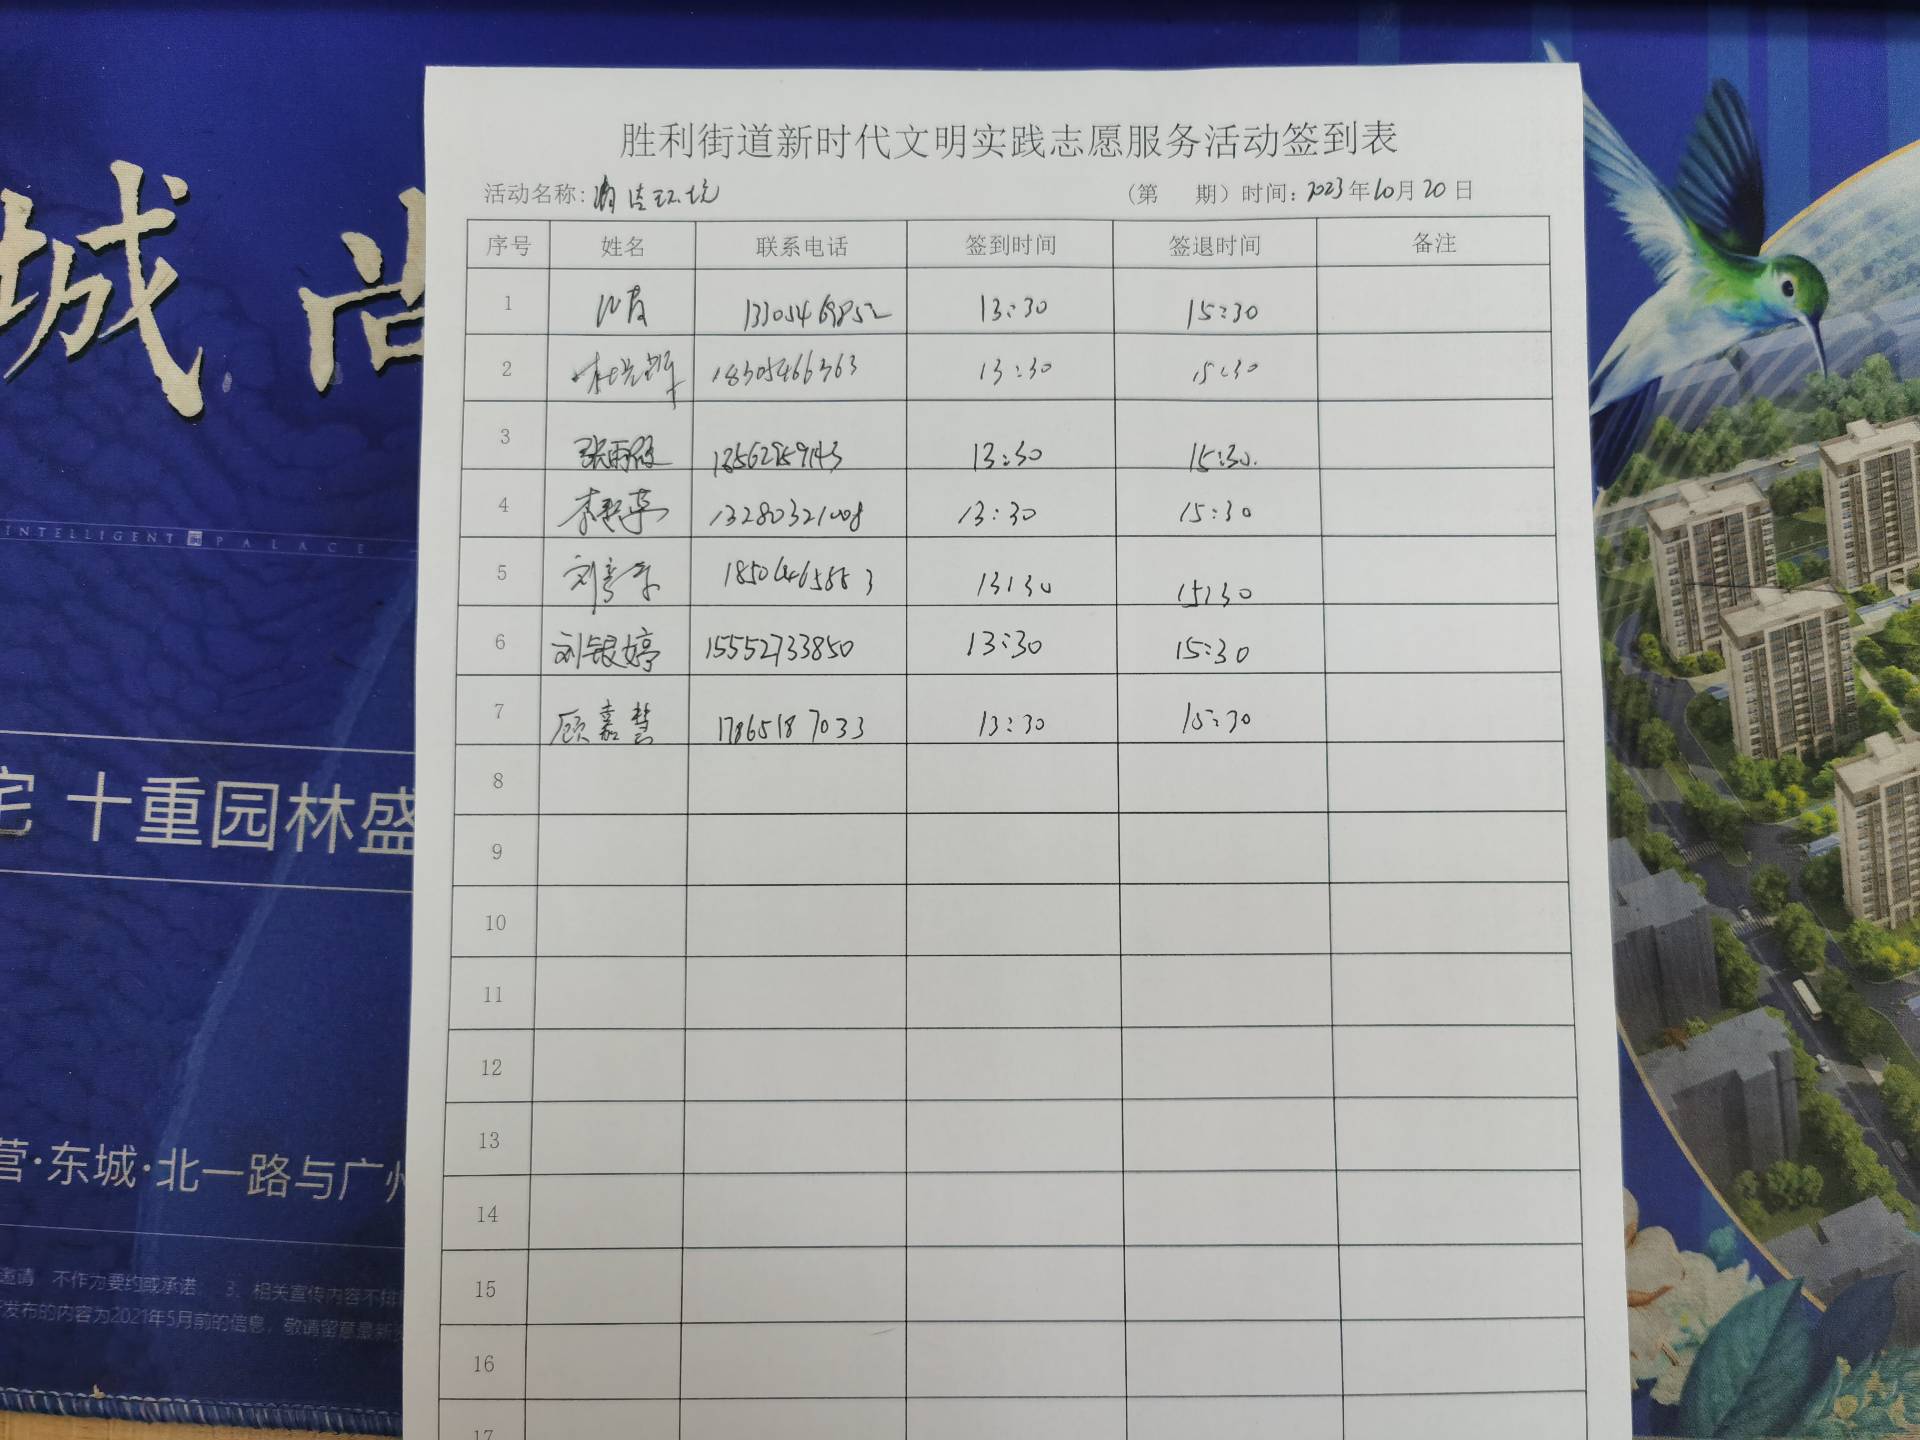 胜利街道新时代文明实践志愿服务活动签到表
活动名称：清洁环境 （第 期）时间：2023年10月20日
序号 姓名 联系电话 签到时间 签退时间 备注
1 13:30 15:30
2 18305466363 13:30 15:30
3 张雨 13:30 15:30.
4 李 13:30 15:30
5 刘 13:30 15:30
6 刘银婷 15552733850 13:30 15:30
7 顾嘉慧 17865187033 13:30 15:30
8
9
10
11
12
13
14
15
16
17
城 尚
INTELLIGENT PALACE
宅 十重园林盛
营·东城·北一路与广州
邀请 不作为要约或承诺； 3、相关宣传内容不排
发布的内容为2021年5月前的信息，敬请留意最新